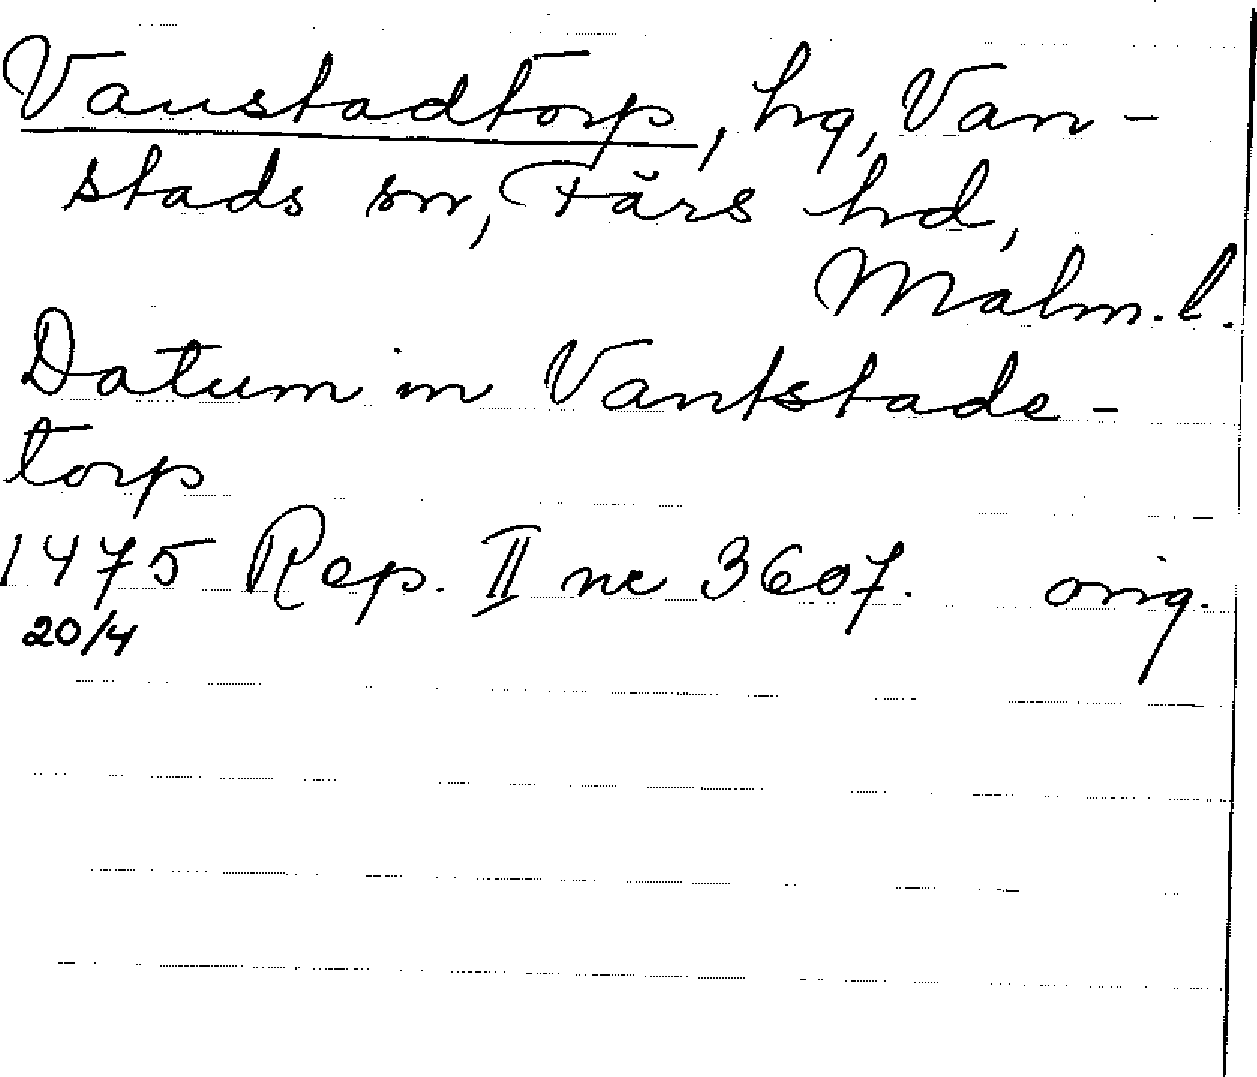 Vanstadtorp, hg, Van-
stads sn, Färs hd,
Malm. l.
Datum in Vantstade-
torp
1475 Rep. II nr 3607. orig.
20/4